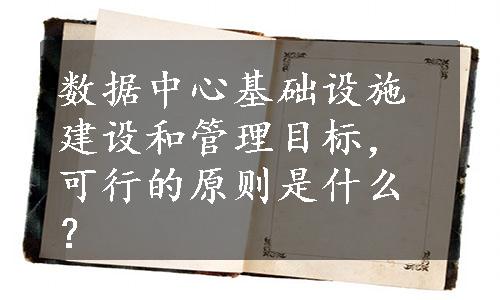 数据中心基础设施
建设和管理目标，
可行的原则是什么
？